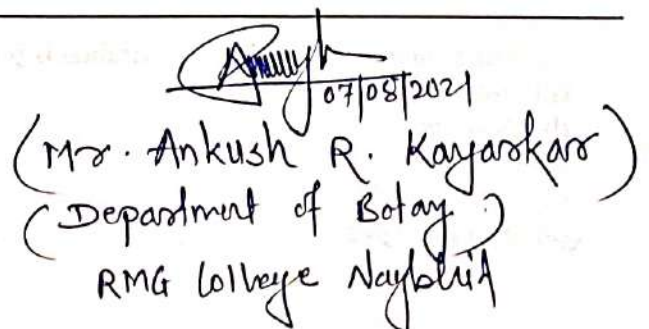 07/08/2021
(Mr. Ankush R. Kayarkar)
(Department of Botany)
RMG College Nagbhid